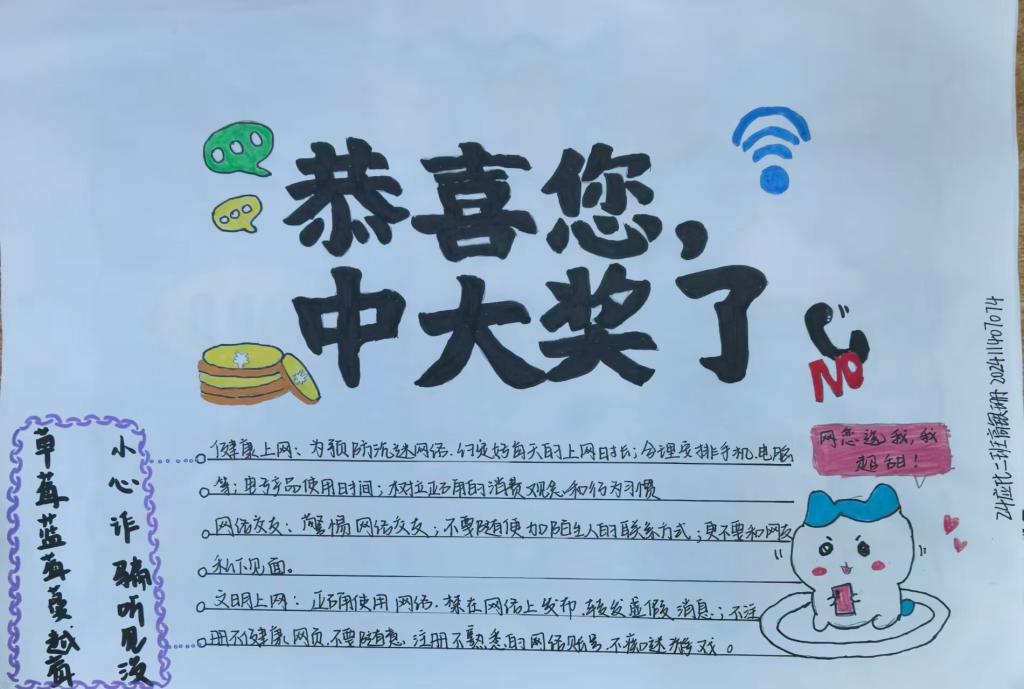 恭喜您,
中大奖了
NO
网恋选我,我
超甜!
小心诈骗听见没
草莓蓝莓蔓越莓
健康上网:为预防沉迷网络,约定好每天的上网时长;合理安排手机、电脑
等;电子产品使用时间;树立正确的消费观念和行为习惯
网络交友:警惕网络交友;不要随便加陌生人的联系方式;更不要和网友
私下见面。
文明上网:正确使用网络,禁在网络上发布,转发虚假消息;不注
册不健康网页,不要随意,注册不熟悉的网络账号,不痴迷游戏。
24应化二班 202411407074